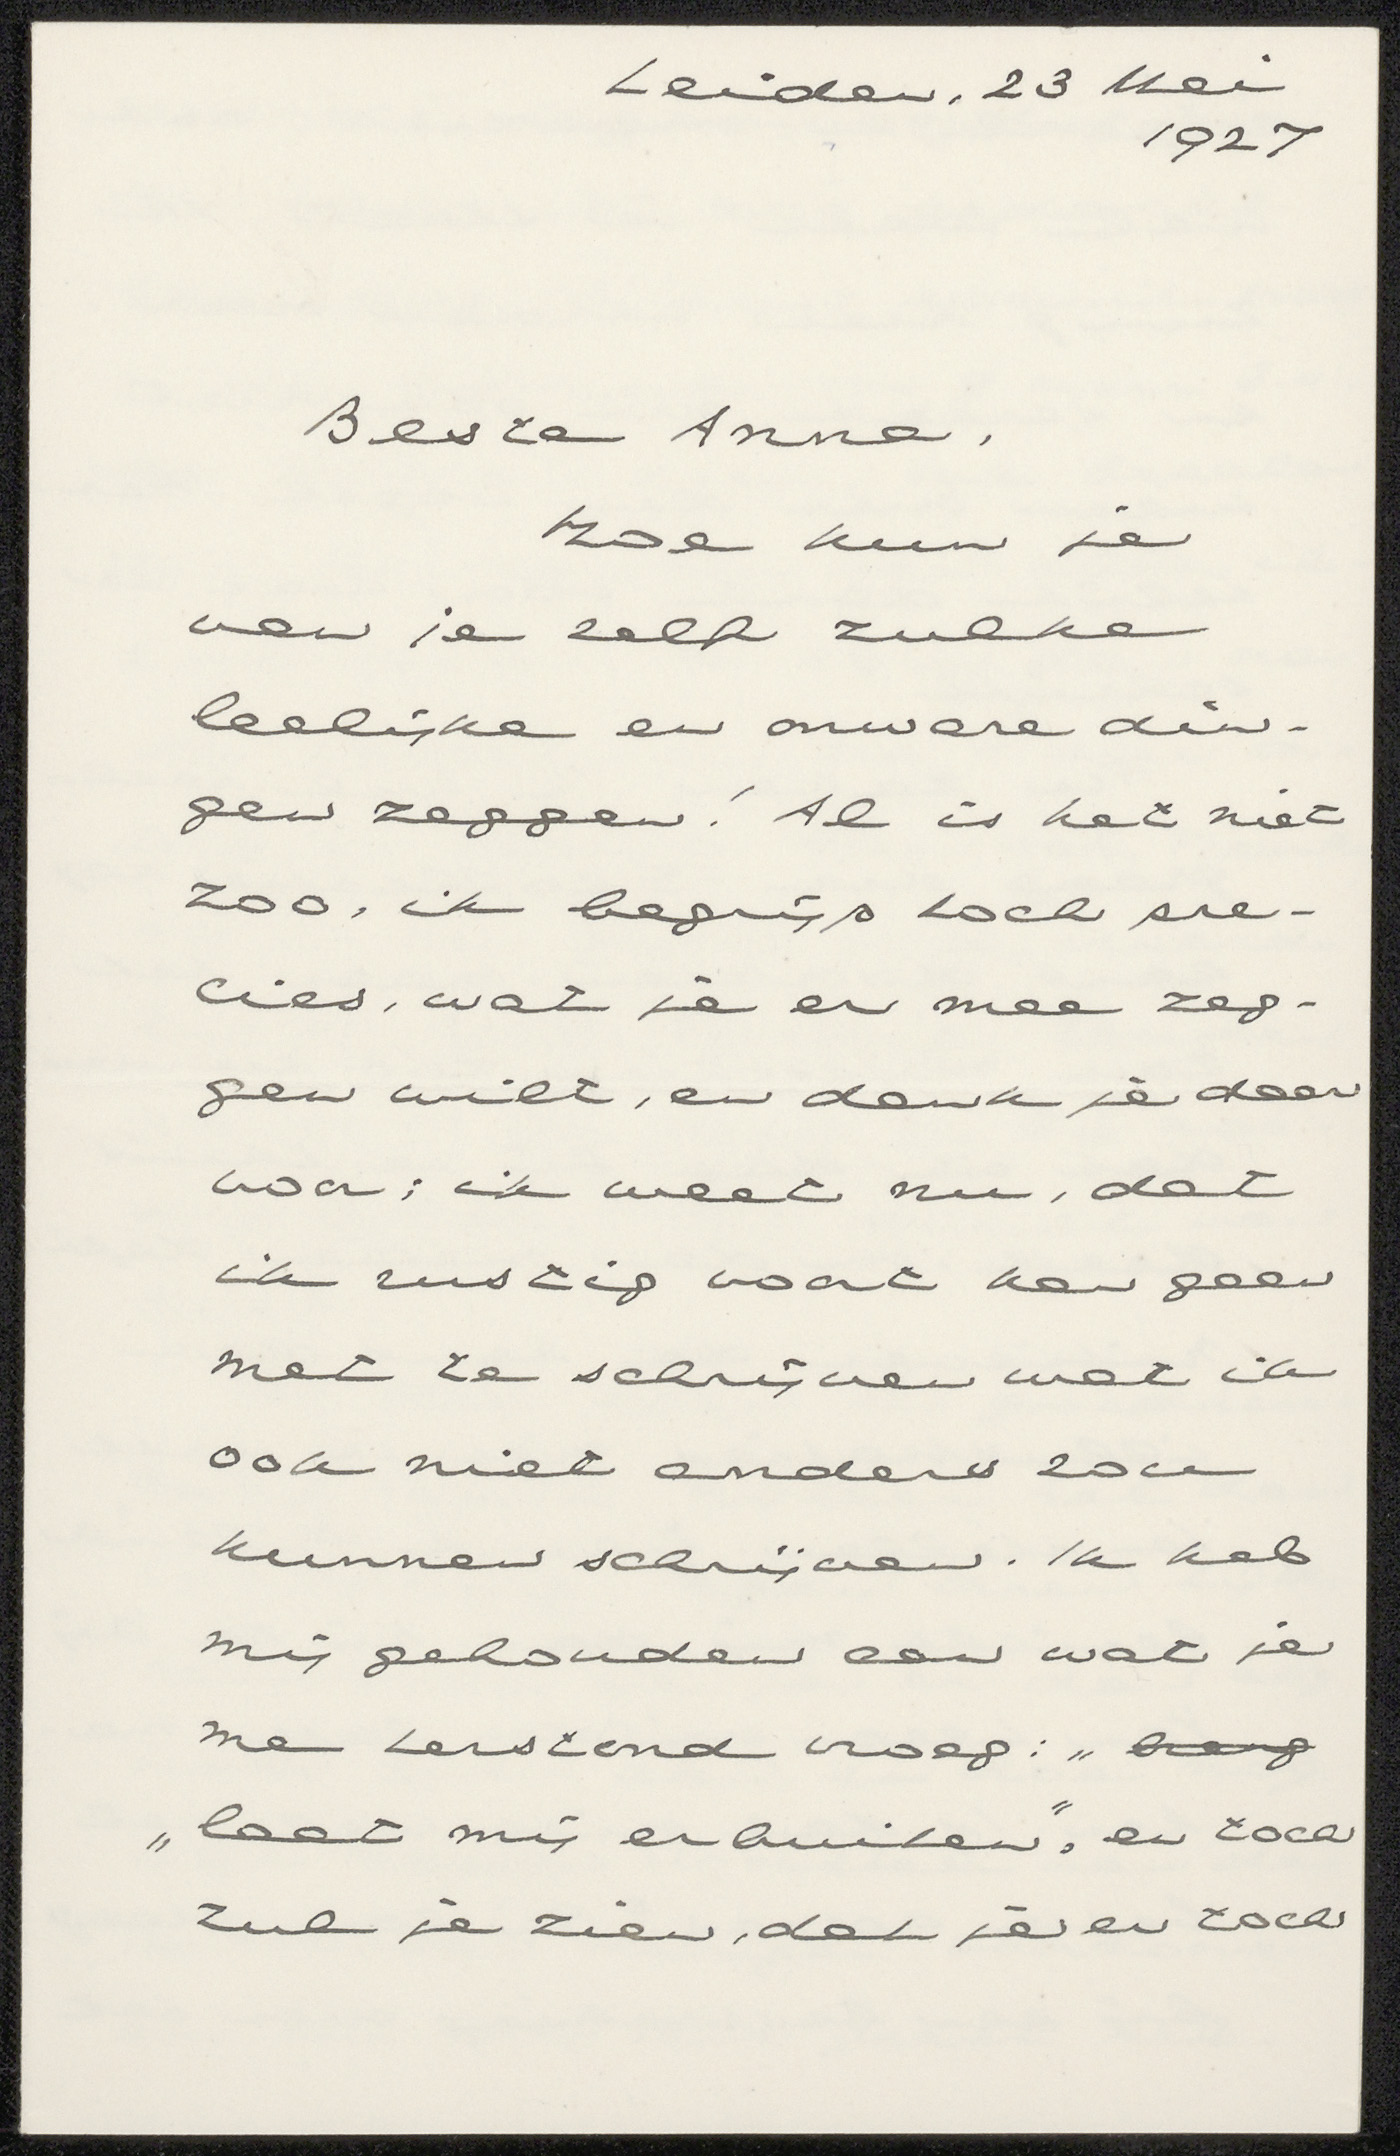 Leiden, 23 Mei
1927
Beste Anna,
Hoe kun je
van je zelf zulke
leelijke en onware din-
gen zeggen! Al is het niet
zoo, ik begrijp toch pre-
cies, wat je er mee zeg-
gen wilt, en dank je daar
voor; ik weet nu, dat
ik rustig voort kan gaan
met te schrijven wat ik
ook niet anders zou
kunnen schrijven. Ik heb
mij gehouden aan wat je
me terstond vroeg: „
„laat mij erbuiten”, en toch
zul je zien, dat je er toch